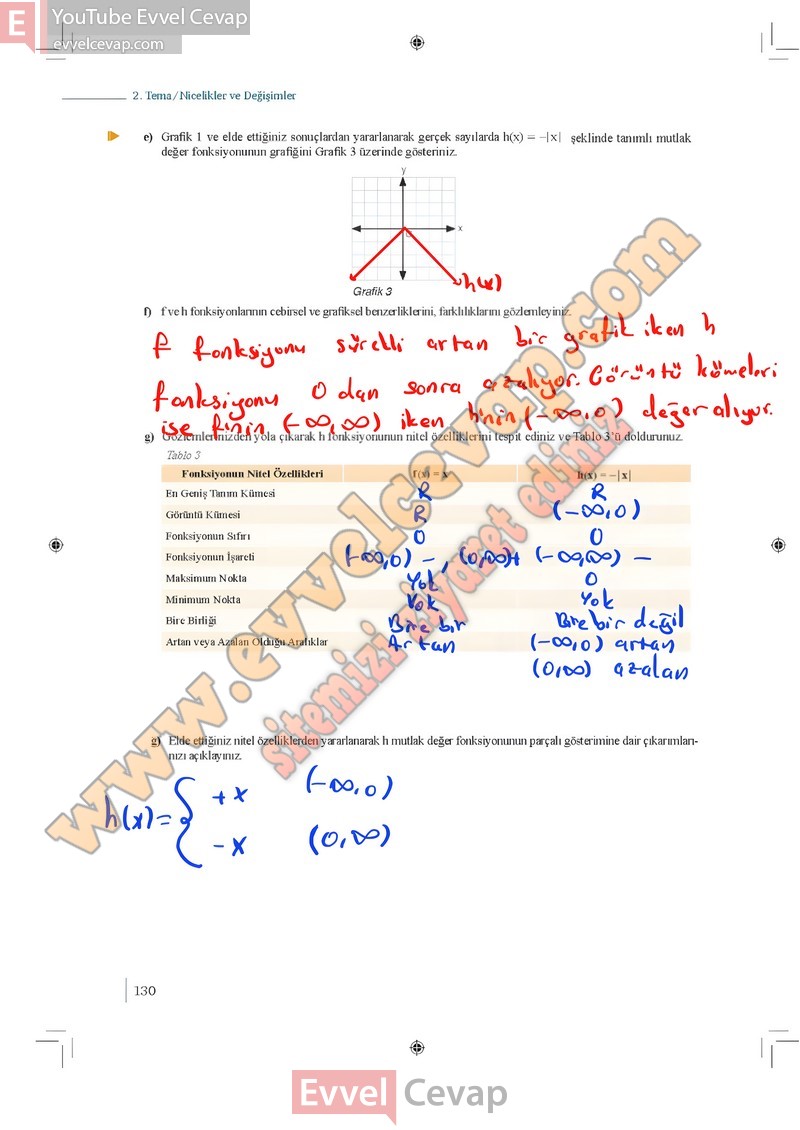 E YouTube Evvel Cevap
evvelcevap.com
2. Tema/Nicelikler ve Değişimler
e) Grafik 1 ve elde ettiğiniz sonuçlardan yararlanarak gerçek sayılarda h(x) = −|x| şeklinde tanımlı mutlak
değer fonksiyonunun grafiğini Grafik 3 üzerinde gösteriniz.
y
x
h(x)
Grafik 3
f) f ve h fonksiyonlarının cebirsel ve grafiksel benzerliklerini, farklılıklarını gözlemleyiniz.
f fonksiyonu sürekli artan bir grafik iken h
fonksiyonu 0 dan sonra azalıyor. Görüntü kümeleri
ise f'nin (-∞,∞) iken h'nin (-∞,0) değer alıyor.
g) Gözlemlerinizden yola çıkarak h fonksiyonunun nitel özelliklerini tespit ediniz ve Tablo 3'ü doldurunuz.
Tablo 3
Fonksiyonun Nitel Özellikleri f(x) = x h(x) = −|x|
En Geniş Tanım Kümesi R R
Görüntü Kümesi R (-∞,0)
Fonksiyonun Sıfırı 0 0
Fonksiyonun İşareti (-∞,0) - , (0,∞)+ (-∞,∞) -
Maksimum Nokta Yok 0
Minimum Nokta Yok Yok
Bire Birliği Bire bir Bire bir değil
Artan veya Azalan Olduğu Aralıklar Artan (-∞,0) artan
(0,∞) azalan
ğ) Elde ettiğiniz nitel özelliklerden yararlanarak h mutlak değer fonksiyonunun parçalı gösterimine dair çıkarımları-
nızı açıklayınız.
h(x)= { +x (-∞,0)
-x (0,∞)
www.evvelcevap.com
sitemizi ziyaret ediniz
130
Evvel Cevap